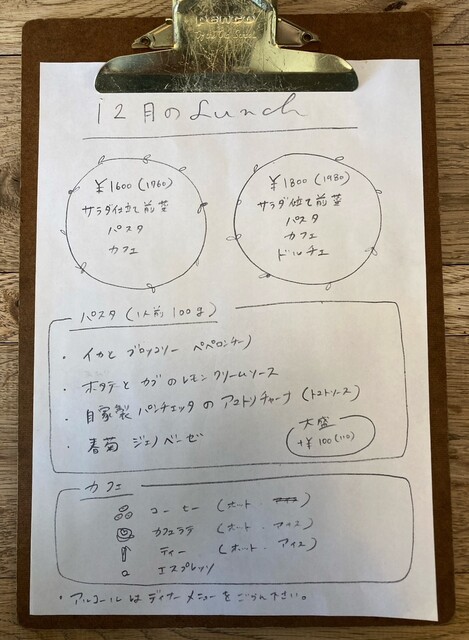 PENCO
12月のLunch
¥1600(1760)
サラダ仕立て前菜
パスタ
カフェ
¥1800(1980)
サラダ仕立て前菜
パスタ
カフェ
ドルチェ
パスタ(1人前100g)
・イカとブロッコリー ペペロンチーノ
・ホタテとカブのレモンクリームソース
・自家製パンチェッタのアマトリチャーナ(トマトソース)
・春菊ジェノベーゼ
大盛
+¥100(110)
カフェ
コーヒー(ホット・
カフェラテ(ホット・アイス)
ティー(ホット・アイス)
エスプレッソ
・アルコールはディナーメニューをごらん下さい。